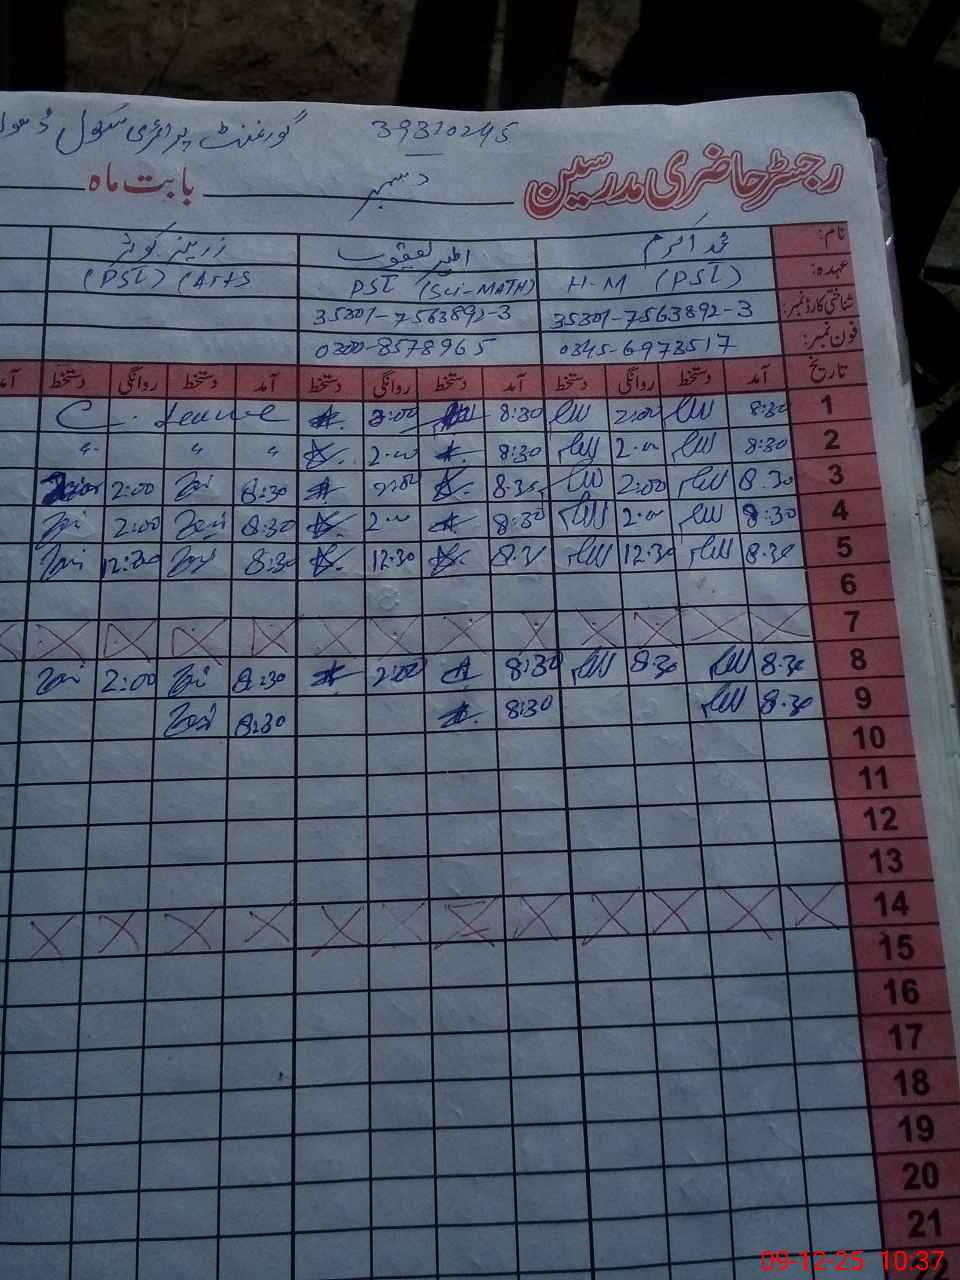 گورنمنٹ پرائمری سکول 39310245
رجسٹر حاضری مدرسین دسمبر بابت ماہ
نام: محمد اکرم اظہر یعقوب زرینہ کوثر
عہدہ: H-M (PST) PST (Sci-MATH) (PST) (Arts
شناختی کارڈ نمبر: 35301-7563892-3 35301-7563892-3
فون نمبر: 0345-6973517 0300-8578965
تاریخ آمد دستخط روانگی دستخط آمد دستخط روانگی دستخط آمد دستخط روانگی دستخط آمد
1 8:30 2:00 8:30 2:00 C. Leave
2 8:30 2.00 8:30 2.00 " " "
3 8.30 2:00 8.30 2:00 8:30 2:00
4 8:30 2.00 8:30 2.00 8:30 2:00
5 8.30 12.30 8.30 12.30 8:30 12:30
6
7
8 8.30 8.30 8:30 2:00 8:30 2:00
9 8.30 8:30 8:30
10
11
12
13
14
15
16
17
18
19
20
21
09-12-25 10:37